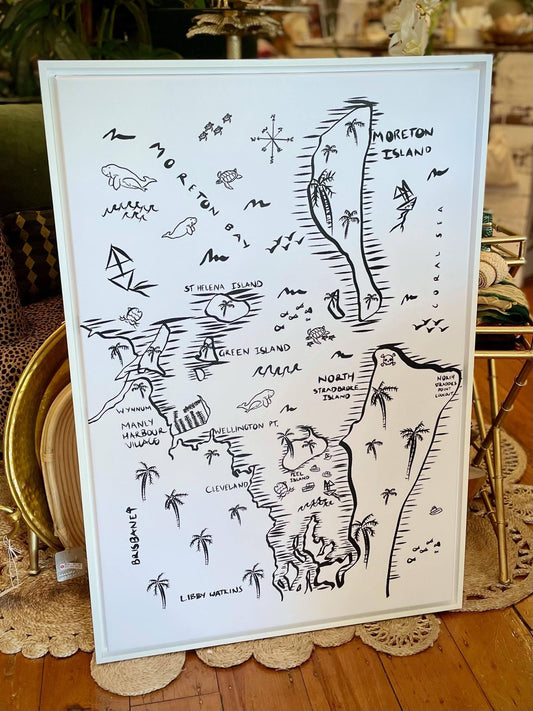 MORETON BAY
MORETON
ISLAND
CORAL SEA
ST HELENA ISLAND
GREEN ISLAND
NORTH
STRADBROKE
ISLAND
NORTH
STRADDIE
POINT
LOOKOUT
WYNNUM
MANLY
HARBOUR
VILLAGE
WELLINGTON PT.
PEEL
ISLAND
CLEVELAND
BRISBANE
LIBBY WATKINS